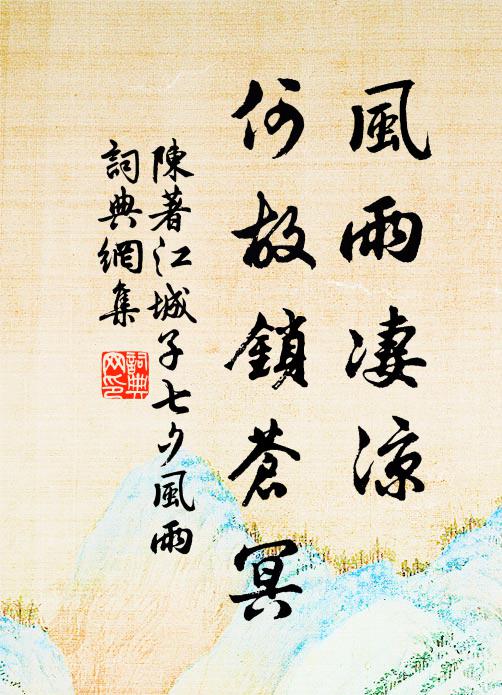 風雨凄涼
何故鎖蒼冥
陳著江城子七夕風雨
詞典網集
詞典
网印